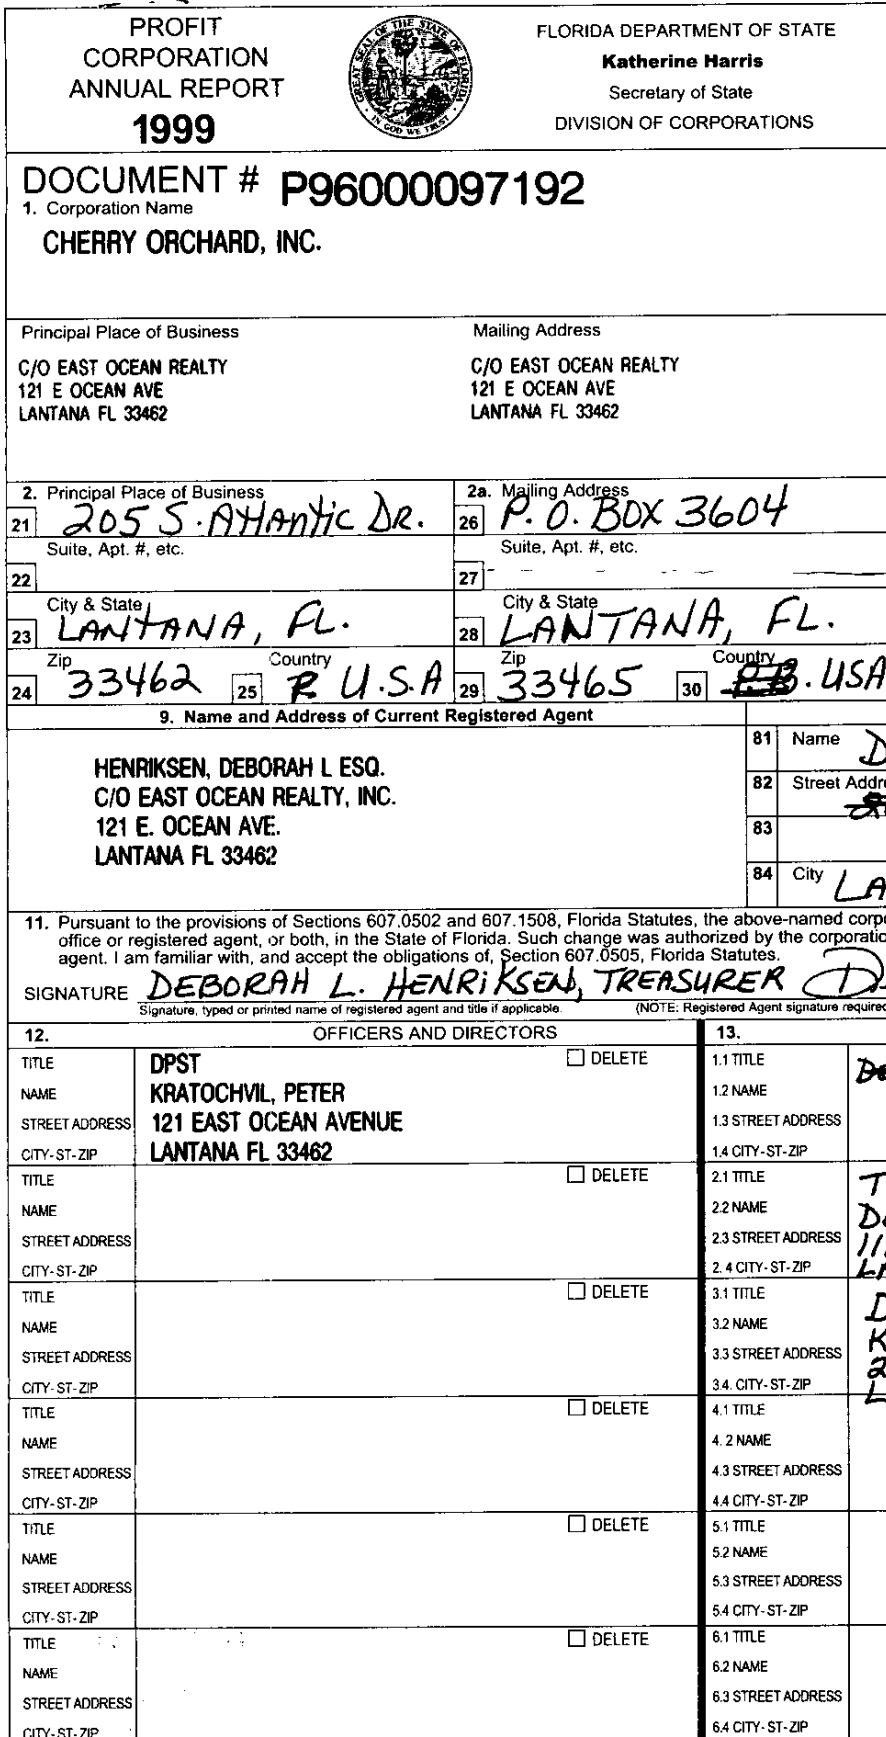 PROFIT
CORPORATION
ANNUAL REPORT
1999
GREAT SEAL OF THE STATE OF FLORIDA
IN GOD WE TRUST
FLORIDA DEPARTMENT OF STATE
Katherine Harris
Secretary of State
DIVISION OF CORPORATIONS
DOCUMENT # P96000097192
1. Corporation Name
CHERRY ORCHARD, INC.
Principal Place of Business
C/O EAST OCEAN REALTY
121 E OCEAN AVE
LANTANA FL 33462
Mailing Address
C/O EAST OCEAN REALTY
121 E OCEAN AVE
LANTANA FL 33462
2. Principal Place of Business
21 205 S. Atlantic DR.
2a. Mailing Address
26 P.O. BOX 3604
Suite, Apt. #, etc.
22
Suite, Apt. #, etc.
27
City & State
23 LANTANA, FL.
City & State
28 LANTANA, FL.
Zip
24 33462
Country
25 U.S.A
Zip
29 33465
Country
30 USA
9. Name and Address of Current Registered Agent
HENRIKSEN, DEBORAH L ESQ.
C/O EAST OCEAN REALTY, INC.
121 E. OCEAN AVE.
LANTANA FL 33462
81 Name D
82 Street Addre
83
84 City LA
11. Pursuant to the provisions of Sections 607.0502 and 607.1508, Florida Statutes, the above-named corp
office or registered agent, or both, in the State of Florida. Such change was authorized by the corporatio
agent. I am familiar with, and accept the obligations of, Section 607.0505, Florida Statutes.
SIGNATURE DEBORAH L. HENRIKSEN, TREASURER
Signature, typed or printed name of registered agent and title if applicable. (NOTE: Registered Agent signature required
12. OFFICERS AND DIRECTORS 13.
TITLE DPST DELETE
NAME KRATOCHVIL, PETER
STREET ADDRESS 121 EAST OCEAN AVENUE
CITY-ST-ZIP LANTANA FL 33462
1.1 TITLE
1.2 NAME
1.3 STREET ADDRESS
1.4 CITY-ST-ZIP
TITLE DELETE
NAME
STREET ADDRESS
CITY-ST-ZIP
2.1 TITLE T
2.2 NAME
2.3 STREET ADDRESS 11
2.4 CITY-ST-ZIP
TITLE DELETE
NAME
STREET ADDRESS
CITY-ST-ZIP
3.1 TITLE D
3.2 NAME K
3.3 STREET ADDRESS 2
3.4. CITY-ST-ZIP L
TITLE DELETE
NAME
STREET ADDRESS
CITY-ST-ZIP
4.1 TITLE
4.2 NAME
4.3 STREET ADDRESS
4.4 CITY-ST-ZIP
TITLE DELETE
NAME
STREET ADDRESS
CITY-ST-ZIP
5.1 TITLE
5.2 NAME
5.3 STREET ADDRESS
5.4 CITY-ST-ZIP
TITLE DELETE
NAME
STREET ADDRESS
CITY-ST-ZIP
6.1 TITLE
6.2 NAME
6.3 STREET ADDRESS
6.4 CITY-ST-ZIP